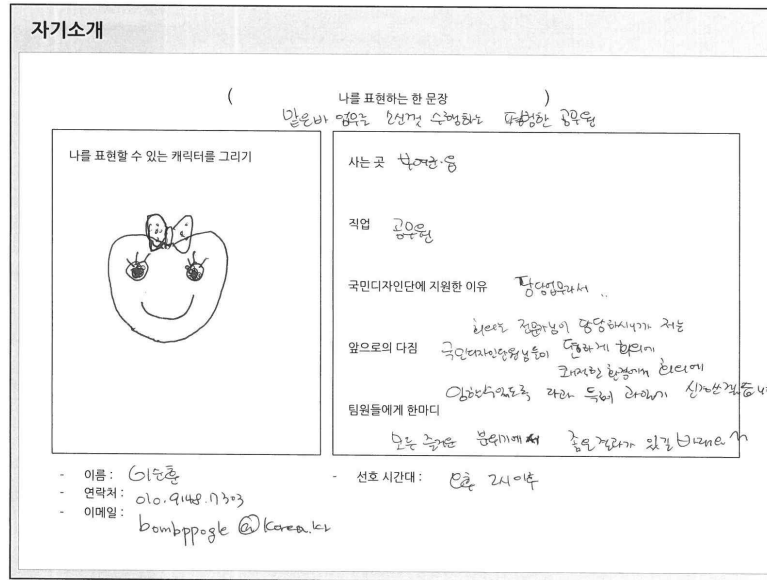 자기소개
( 나를 표현하는 한 문장 )
맡은바 업무를 소신껏 수행하는 평범한 공무원
나를 표현할 수 있는 캐릭터를 그리기
사는 곳 부여군.읍
직업 공무원
국민디자인단에 지원한 이유 담당업무라서..
회의는 전문가님이 담당하시니까 저는
앞으로의 다짐 국민디자인단원님들이 편하게 회의에
쾌적한 환경에서 회의에
임할수있도록 다과 특히 과일에 신경쓰겠습니
팀원들에게 한마디
모두 즐거운 분위기에서 좋은 결과가 있길 바래요~
- 이름 : 이순훈
- 연락처 : 010.9148.7303
- 이메일 : bombppogle@korea.kr
- 선호 시간대 : 오후 2시이후